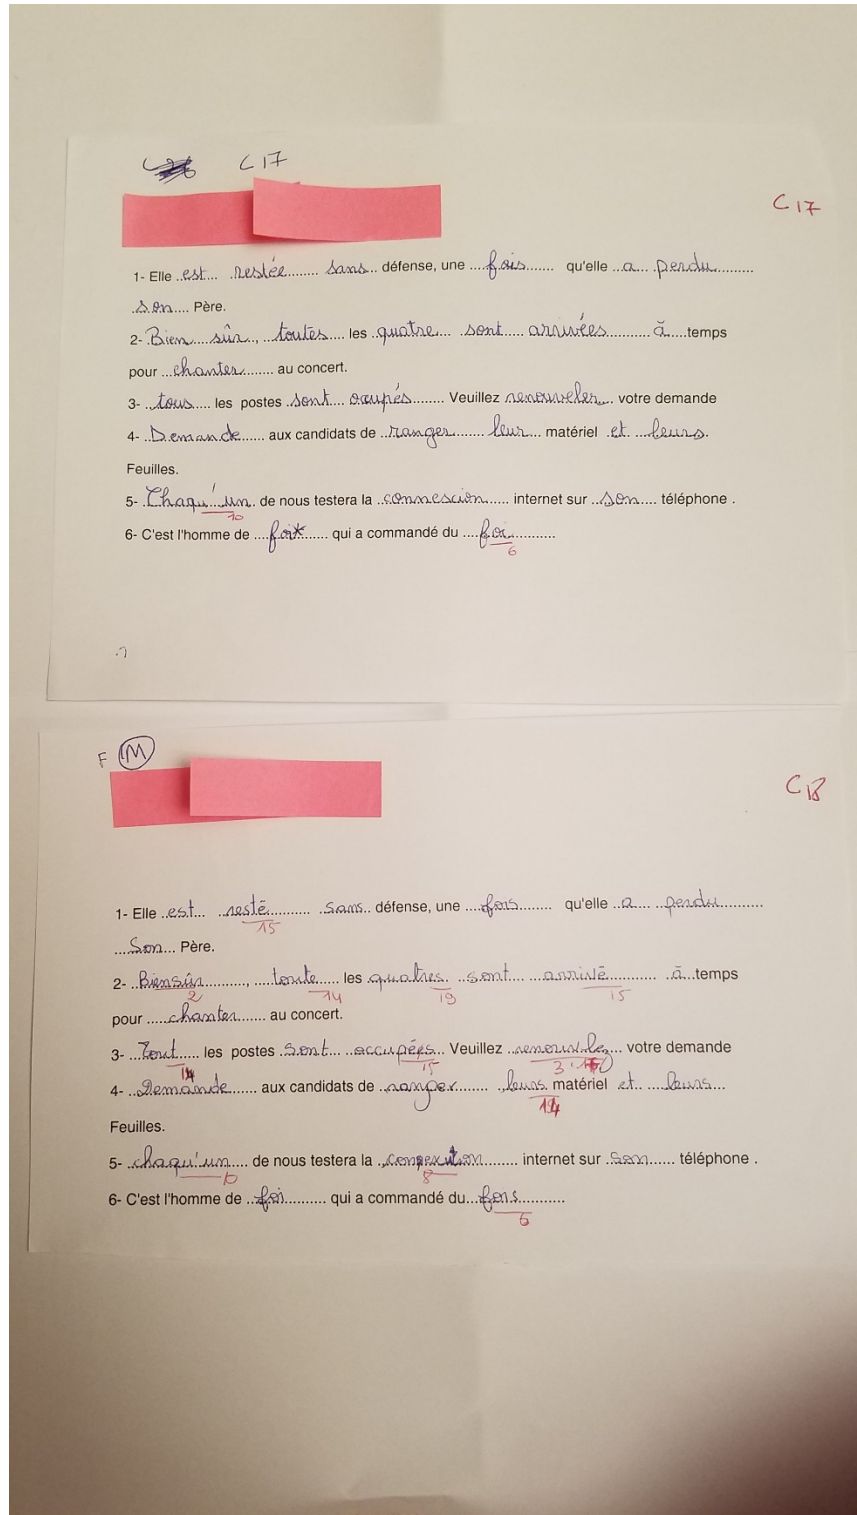 C17
C17
1- Elle ..est... .restée........ sans.. défense, une ....fois....... qu'elle ...a.... .perdu..........
.son.... Père.
2- .Bien.....sûr..., ...toutes.... les ..quatre.... .sont..... arrivées........... à.....temps
pour ...chanter........ au concert.
3- ..tous..... les postes .sont.... ocupés........ Veuillez renouveler... votre demande
4- ..Demande...... aux candidats de ..ranger........ leur... matériel .et. ...leurs.
Feuilles.
5- .Chaqu'....un.. de nous testera la ..connescion...... internet sur ..son.... téléphone .
10
6- C'est l'homme de ....foi....... qui a commandé du ....foi............
6
F M
C18
1- Elle ..est... ..resté.......... .sans.. défense, une ....fois........ qu'elle ..a..... ..perdu...........
15
....Son... Père.
2- ..Biensûr.........., .....toute..... les quatres. ..sont.... ...arrivé........... ..à...temps
2 14 19 15
pour .....chanter....... au concert.
3- ...Tout..... les postes .sont... ..accupées... Veuillez ..renouvlez... votre demande
14 15 3
4- ..Demande....... aux candidats de ..ranger........ ..leurs. matériel et.. ....leurs...
14
Feuilles.
5- ..chaqu'un.... de nous testera la ..connexion......... internet sur .Son...... téléphone .
10 8
6- C'est l'homme de ..foi.......... qui a commandé du...fois...........
6